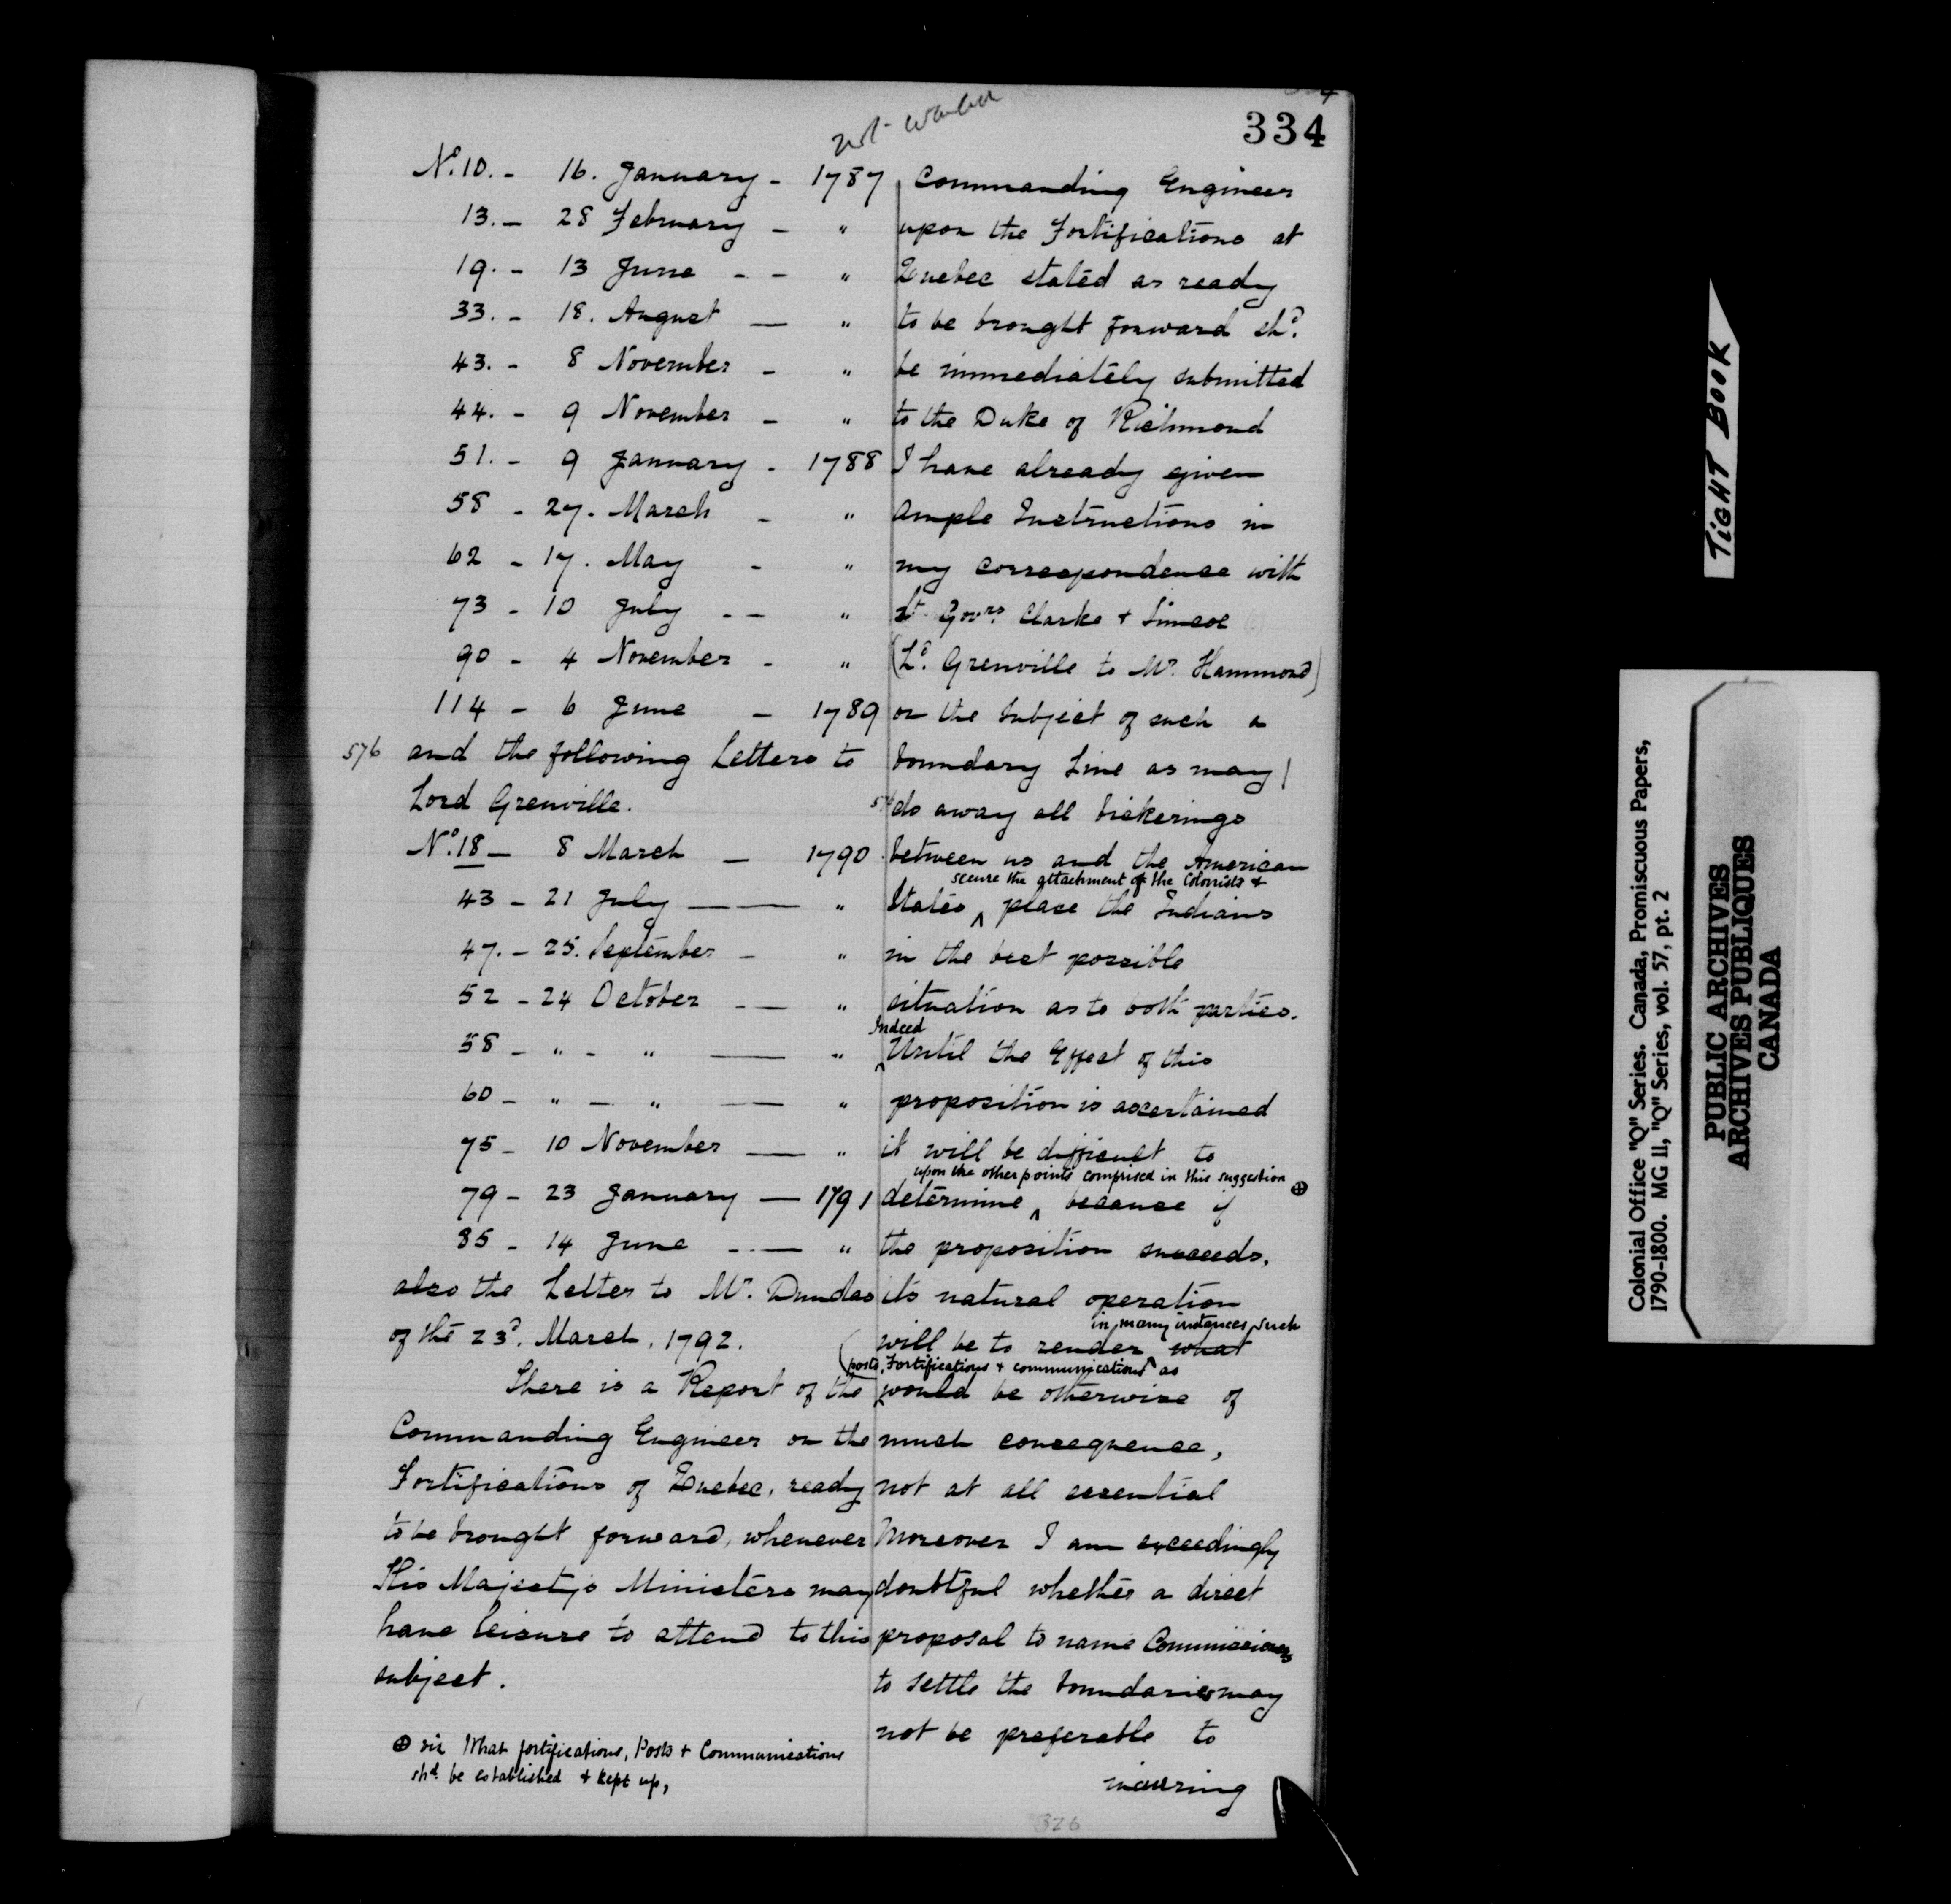 334
No. 10. - 16. January - 1787
13. - 28 February - "
19. - 13 June - - "
33. - 18. August — "
43. - 8 November - "
44. - 9 November - "
51. - 9 January - 1788
58 - 27. March - "
62 - 17. May - "
73 - 10 July - - "
90 - 4 November - "
114 - 6 June - 1789
576 and the following Letters to
Lord Grenville.
No. 18 - 8 March — 1790
43 - 21 July — — "
47. - 25. September - "
52 - 24 October - — "
58 - " - " — "
60 - " — " — "
75 - 10 November — "
79 - 23 January — 1791
85 - 14 June - — "
also the Letter to Mr. Dundas
of the 23d. March. 1792.
There is a Report of the
Commanding Engineer on the
Fortifications of Quebec, ready
to be brought forward, whenever
His Majesty's Ministers may
have leisure to attend to this
subject.
⊕ viz What fortifications, Posts + Communications
shd. be established + kept up,
Commanding Engineer
upon the Fortifications at
Quebec stated as ready
to be brought forward shd.
be immediately submitted
to the Duke of Richmond
I have already given
ample Instructions in
my correspondence with
Lt. Govrs. Clarke + Simcoe
(Ld. Grenville to Mr. Hammond)
on the subject of such a
boundary Line as may
576 do away all bickerings
between us and the American
secure the attachment of the Colonists +
States ^ place the Indians
in the best possible
situation as to both parties.
Indeed
^ Until the Effect of this
proposition is ascertained
it will be difficult to
upon the other points comprised in this suggestion ⊕
determine ^ because if
the proposition succeeds,
its natural operation
in many instances such
will be to render what
(posts, Fortifications + communications as
^ would be otherwise of
much consequence,
not at all essential
Moreover I am exceedingly
doubtful whether a direct
proposal to name Commissioners
to settle the boundaries may
not be preferable to
incurring
326
TIGHT BOOK
Colonial Office "Q" Series. Canada, Promiscuous Papers,
1790-1800. MG 11, "Q" Series, vol. 57, pt. 2
PUBLIC ARCHIVES
ARCHIVES PUBLIQUES
CANADA